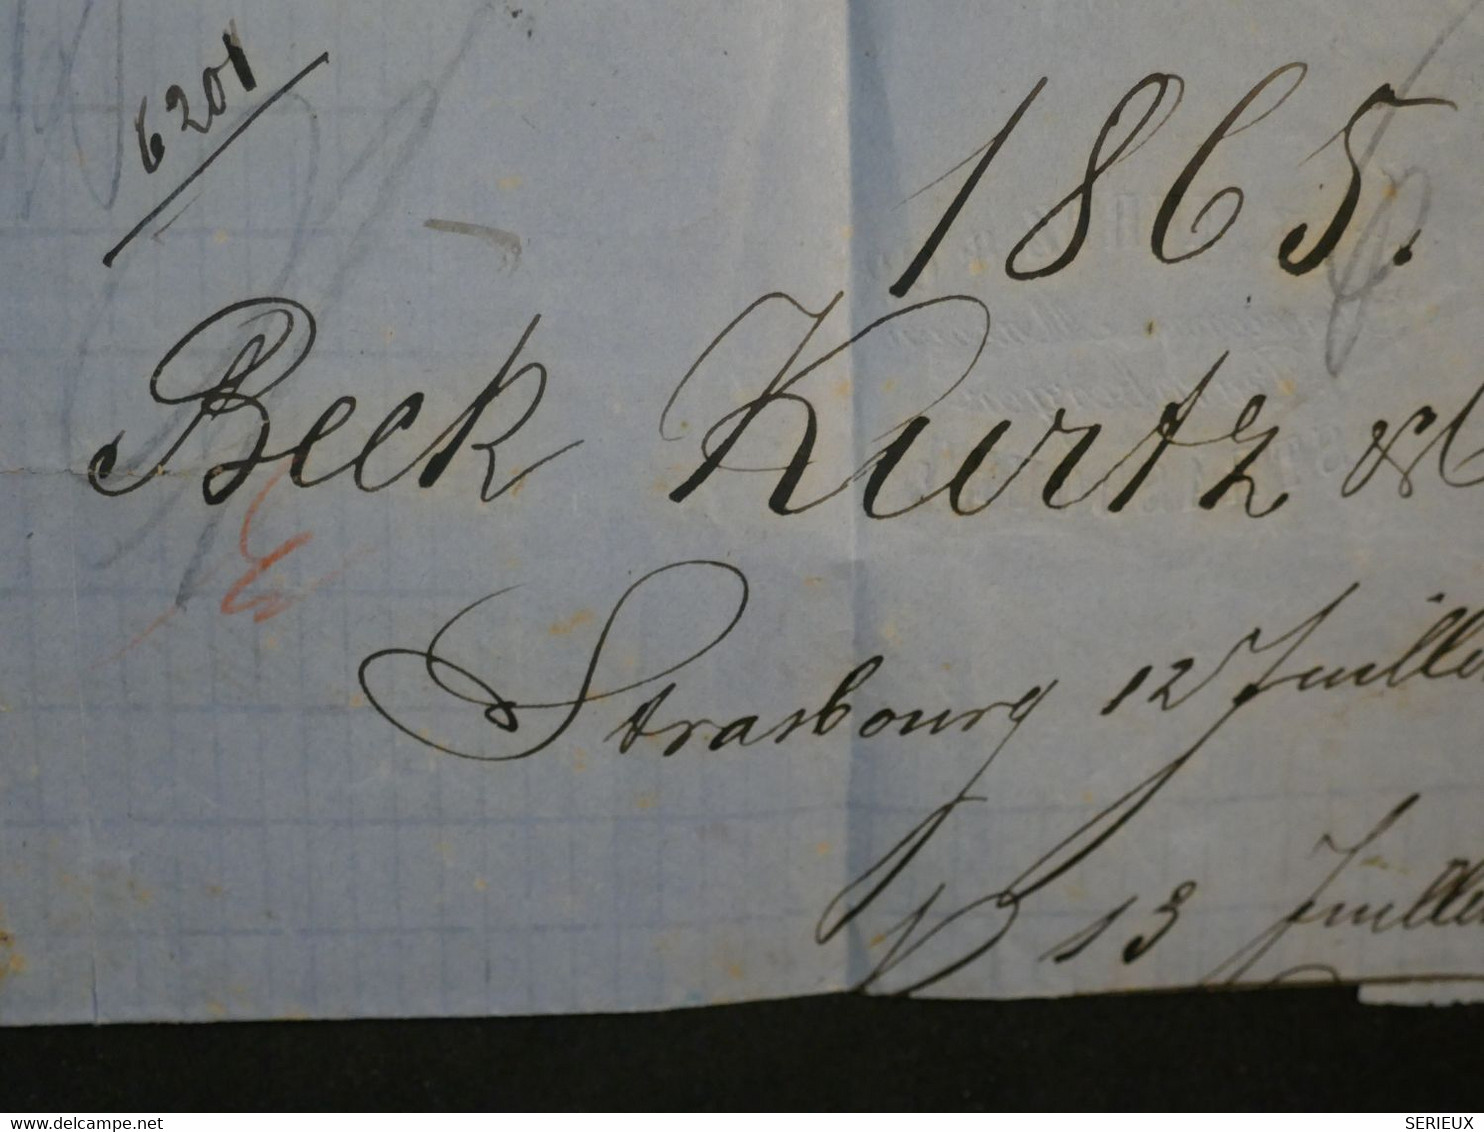 6201
1865.
Beck Kurtz &
Strasbourg 12 Juillet
13 Juillet
delcampe.net
SERIEUX